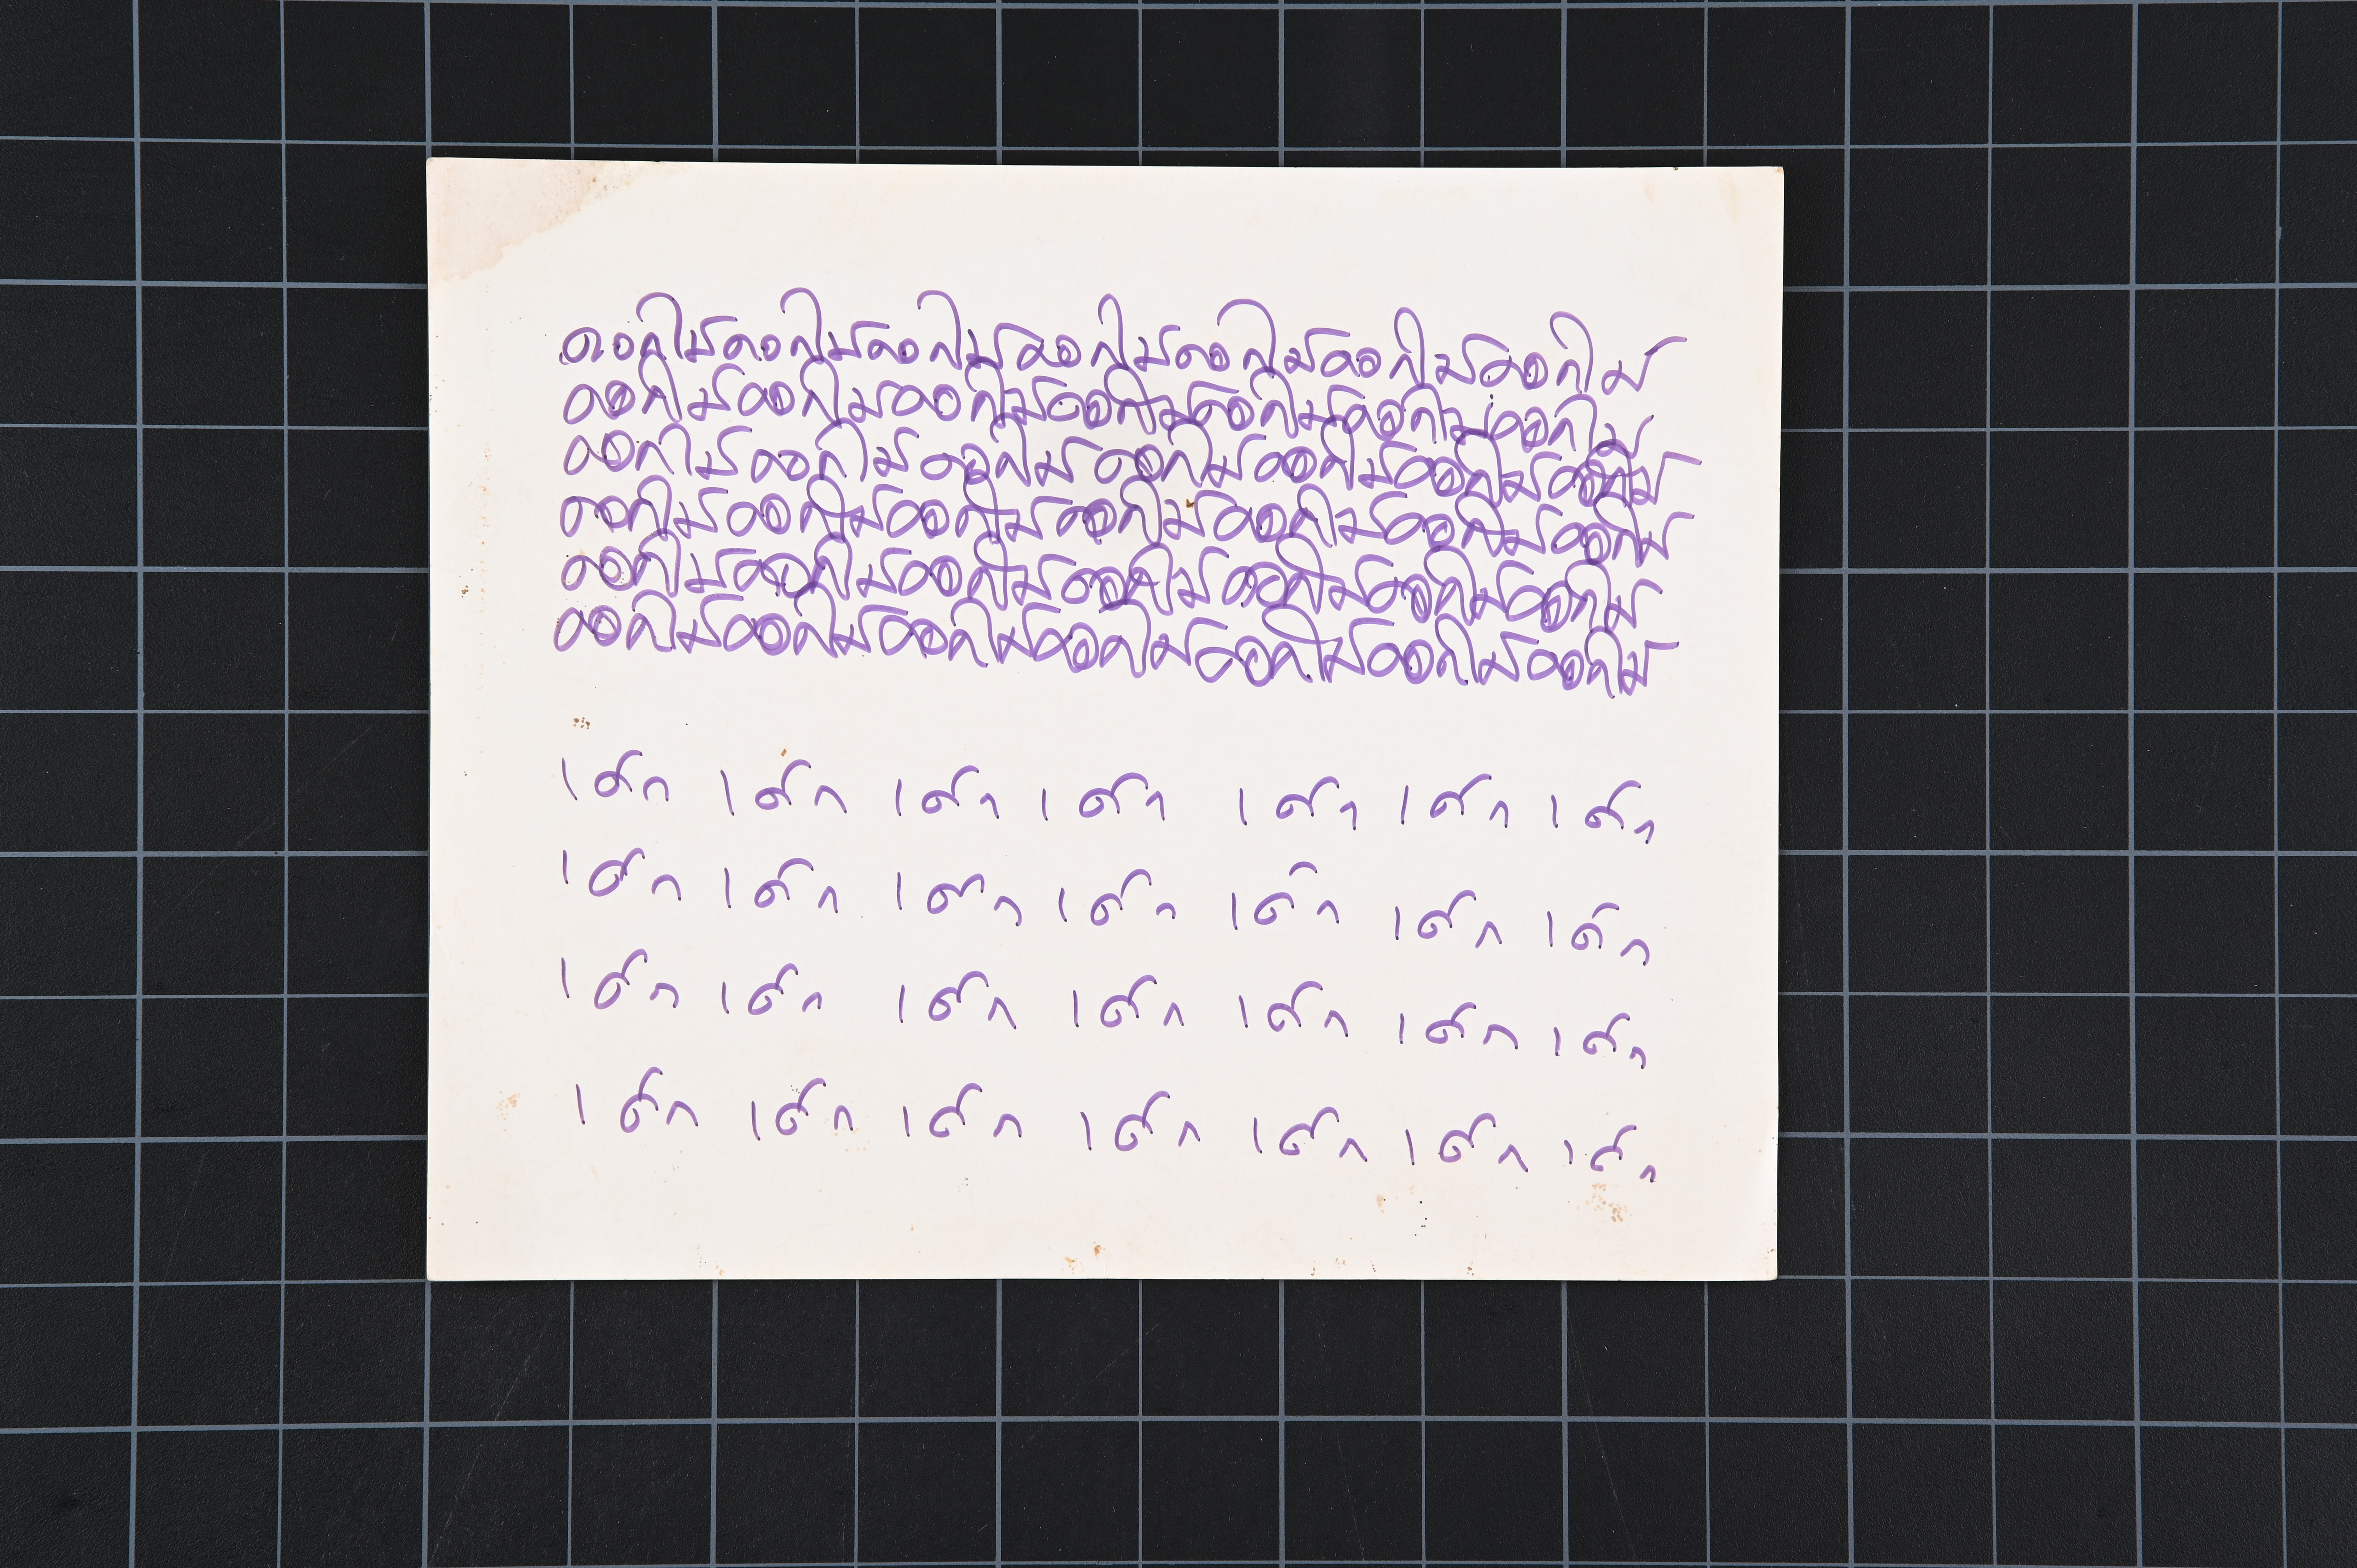 ดอกไม้ดอกไม้ดอกไม้ดอกไม้ดอกไม้ดอกไม้ดอกไม้
ดอกไม้ดอกไม้ดอกไม้ดอกไม้ดอกไม้ดอกไม้ดอกไม้
ดอกไม้ดอกไม้ดอกไม้ดอกไม้ดอกไม้ดอกไม้ดอกไม้
ดอกไม้ดอกไม้ดอกไม้ดอกไม้ดอกไม้ดอกไม้ดอกไม้
ดอกไม้ดอกไม้ดอกไม้ดอกไม้ดอกไม้ดอกไม้ดอกไม้
ดอกไม้ดอกไม้ดอกไม้ดอกไม้ดอกไม้ดอกไม้ดอกไม้
เด็ก เด็ก เด็ก เด็ก เด็ก เด็ก เด็ก
เด็ก เด็ก เด็ก เด็ก เด็ก เด็ก เด็ก
เด็ก เด็ก เด็ก เด็ก เด็ก เด็ก เด็ก
เด็ก เด็ก เด็ก เด็ก เด็ก เด็ก เด็ก